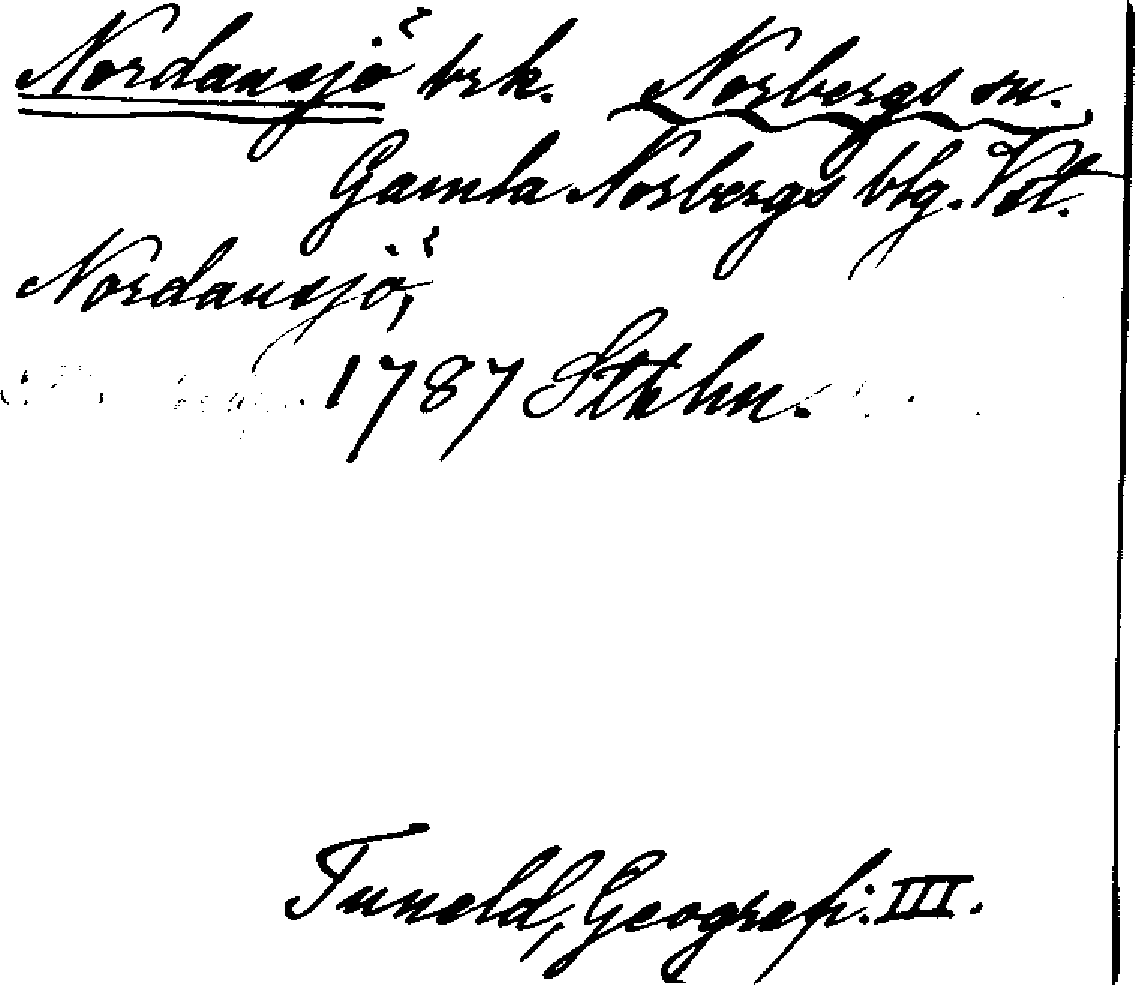 Nordansjö brk. Norbergs sn.
Gamla Norbergs blg. Vstl.
Nordansjö,
1787 Sthlm.
Tuneld, Geografi. III.